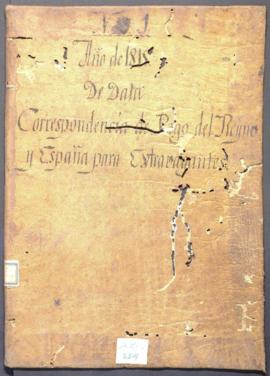 Año de 1815
De Data
Correspondencia de Pago del Reyno
y España para Extravagantes